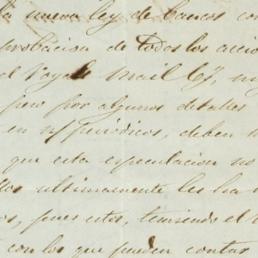 la nueva ley de bancos con
probacion de todos los accio
al Royal Mail Cy,
pero por algunos detalles
en n/ periódicos, deben
que esta especulacion no
ellos ultimamente les ha
os, pues estos, temiendo el
con los que pueden contar